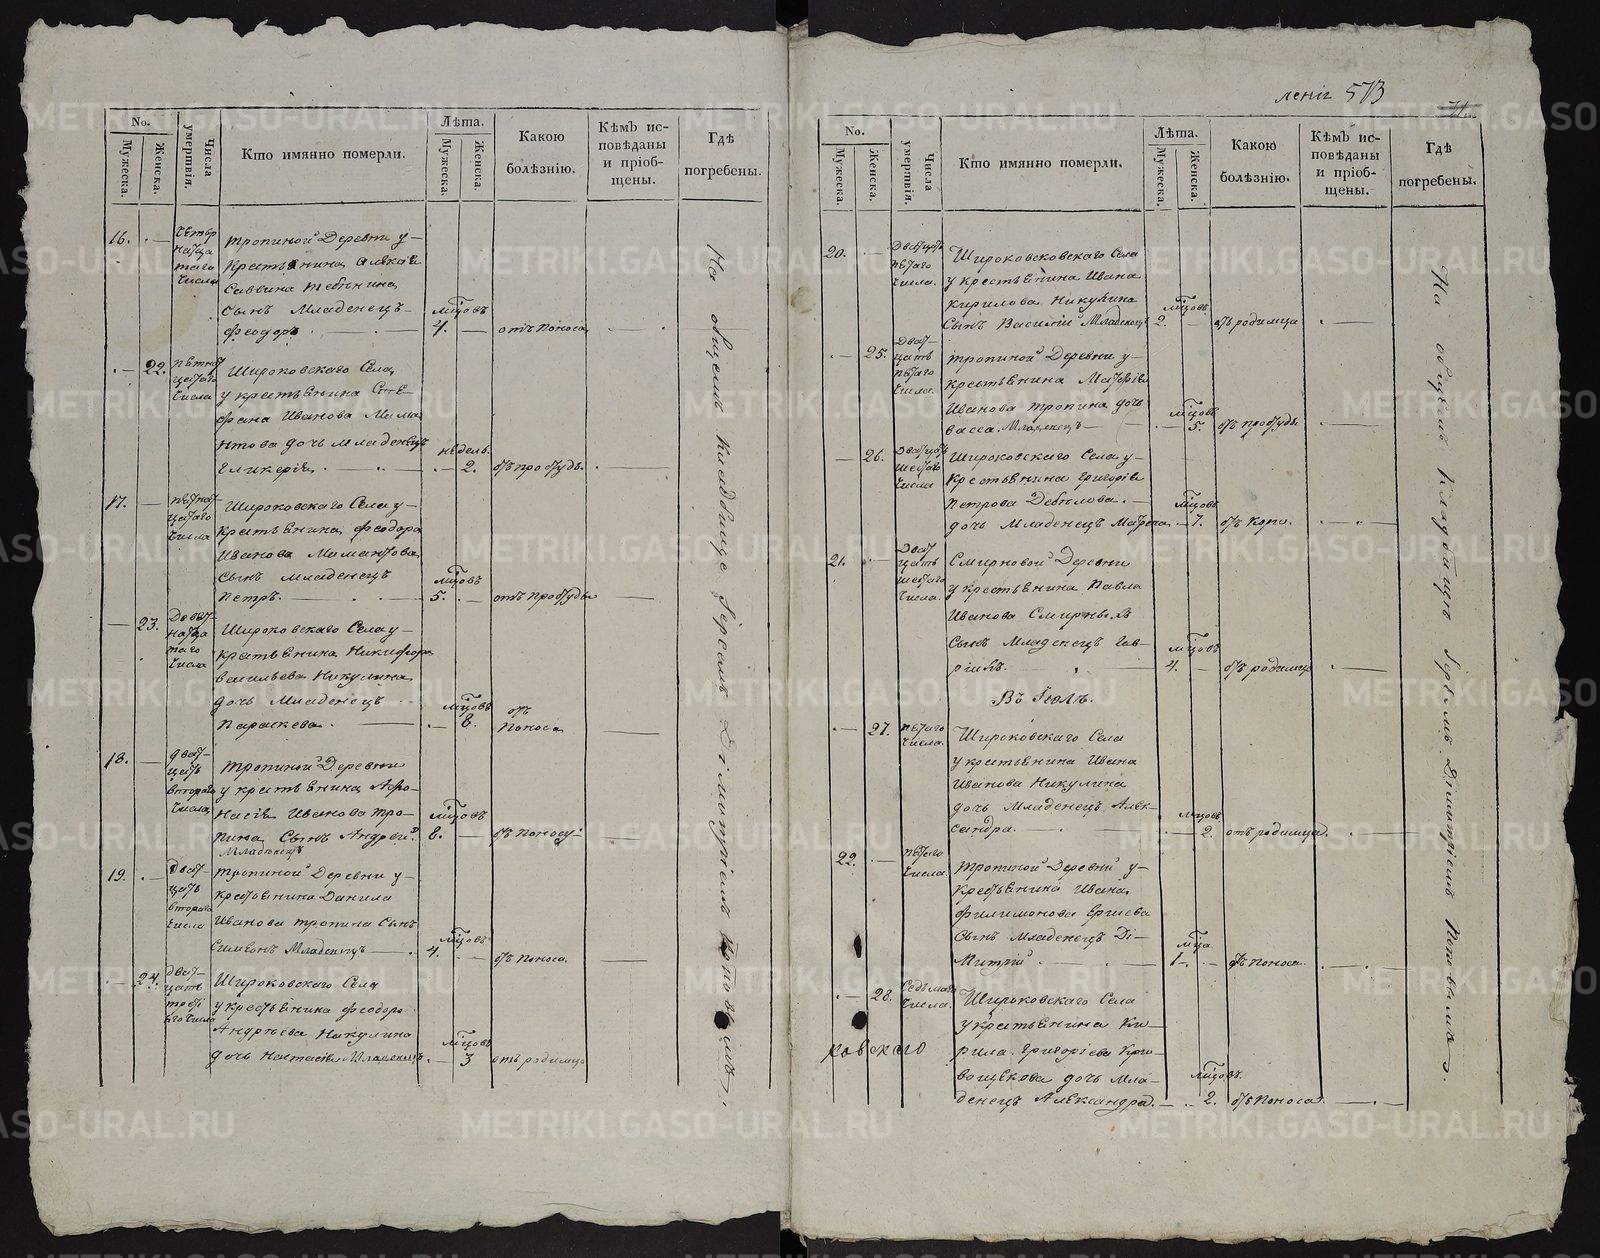 No.
Мужеска.
Женска.
Числа умертвія.
Кто имянно померли.
Лѣта.
Мужеска.
Женска.
Какою болѣзнію.
Кѣмъ исповѣданы и пріобщены.
Гдѣ погребены.
16.
Четыр
надца
таго
числа
Тропиной Деревни у
Крестьянина
Саввина
сынъ Младенецъ
Феодоръ
мцовъ
4.
отъ поноса
22.
пятнад
цатаго
числа
Широковскаго Села
у крестьянина Сте
фана Иванова Мама
нтова дочь младенецъ
Гликерія
недель.
2.
отъ простуды
17.
пятнад
цатаго
числа
Широковскаго Села у
крестьянина Феодора
Иванова Мамантова
сынъ младенецъ
Петръ.
мцовъ
5.
отъ простуды
23.
Девят
надца
таго
числа
Широковскаго Села у
крестьянина Никифора
Васильева Никулина
дочь Младенецъ
Параскева.
мцовъ
8.
отъ
поноса
18.
двад
цать
втораго
числа
Тропиной Деревни
у крестьянина Афо
насія Иванова Тро
пина Сынъ Андрей
Младенецъ
мцовъ
8.
отъ поносу
19.
Двад
цать
втораго
числа
Тропиной Деревни у
крестьянина Данила
Иванова Тропина Сынъ
Симеонъ Младенецъ
мцовъ
4.
отъ поноса.
24.
двад
цать
треть
яго числа
Широковскаго Села
у крестьянина Феодора
Андреева Никулина
дочь Настасія Младенецъ
мцовъ
3
отъ родимца
На общемъ кладбище Іереемъ Димитріемъ Поповымъ.
лениг 573
No.
Мужеска.
Женска.
Числа умертвія.
Кто имянно померли.
Лѣта.
Мужеска.
Женска.
Какою болѣзнію.
Кѣмъ исповѣданы и пріобщены.
Гдѣ погребены.
20.
Двадцать
пятаго
числа.
Широковсковскаго Села
у крестьянина Ивана
Кирилова Никулина
Сынъ Василій Младенецъ
мцовъ
2.
отъ родимца
25.
Двад
цать
пятаго
числа.
Тропиной Деревни у
крестьянина Матфія
Иванова Тропина дочь
Васса Младенецъ
мцовъ
5.
отъ простуды.
26.
Двадцать
шестаго
числа
Широковскаго Села у
крестьянина Григорія
Петрова
дочь Младенецъ Матрона
мцовъ
7.
отъ кори.
21.
Двад
цать
шестаго
числа.
Смирновой Деревни
у крестьянина Павла
Иванова Смирныхъ
Сынъ Младенецъ Гав
ріилъ.
мцовъ
4.
отъ родимца
Въ Іюлѣ.
27.
пятаго
числа.
Широковскаго Села
у крестьянина Ивана
Иванова Никулина
дочь Младенецъ Алек
сандра.
мцовъ
2.
отъ родимца.
22.
пятаго
числа.
Тропиной Деревни у
крестьянина Ивана
Филимонова Ергиева
Сынъ Младенецъ Ди
митрій
мца
1
отъ поноса
28.
Седьмаго
числа.
Широковскаго Села
у крестьянина Ки
ровскаго
рила Григоріева Кри
вощекова дочь Мла
денецъ Александра.
мцовъ.
2.
отъ поноса.
На общемъ кладбищѣ Іереемъ Димитріемъ Поповымъ.
METRIKI.GASO-URAL.RU